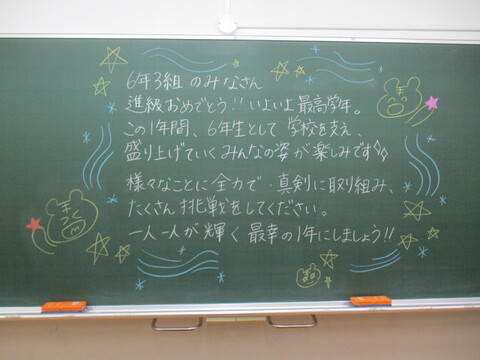 6年3組のみなさん
進級おめでとう!! いよいよ最高学年。
この1年間、6年生として学校を支え、
盛り上げていくみんなの姿が楽しみです
様々なことに全力で・真剣に取り組み、
たくさん挑戦をしてください。
一人一人が輝く最幸の1年にしましょう!!